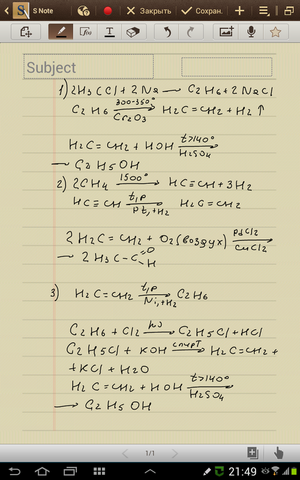 S Note
Закрыть
Сохран.
Subject
1) 2H3CCl + 2Na → C2H6 + 2NaCl
C2H6 300-350° Cr2O3 → H2C=CH2 + H2↑
H2C=CH2 + HOH t>140° H2SO4
→ C2H5OH
2) 2CH4 1500° → HC≡CH + 3H2
HC≡CH t,p Pt,+H2 → H2C=CH2
2H2C=CH2 + O2 (воздух) PdCl2 CuCl2
→ 2H3C-C=O -H
3) H2C=CH2 t,p Ni,+H2 → C2H6
C2H6 + Cl2 hν → C2H5Cl + HCl
C2H5Cl + KOH спирт → H2C=CH2 +
+ KCl + H2O
H2C=CH2 + HOH t>140° H2SO4
→ C2H5OH
1/1
21:49